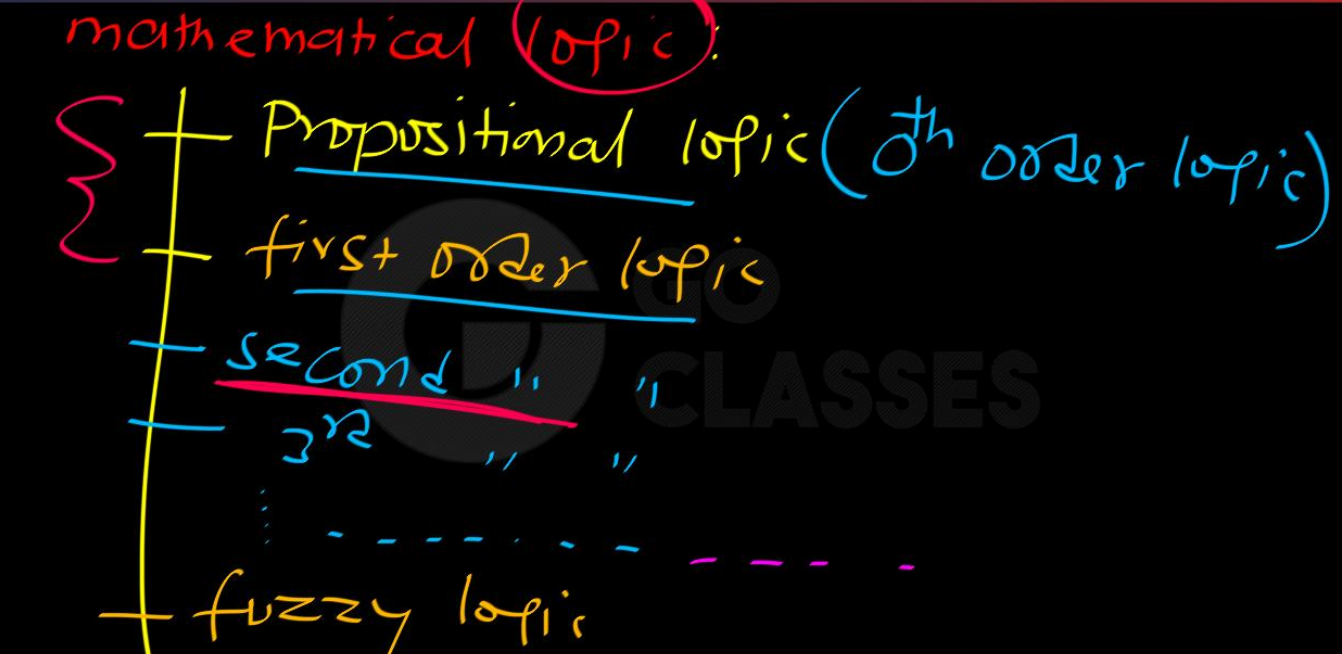 mathematical logic:
Propositional logic (0th order logic)
first order logic
second " "
3rd " "
fuzzy logic
GO
CLASSES